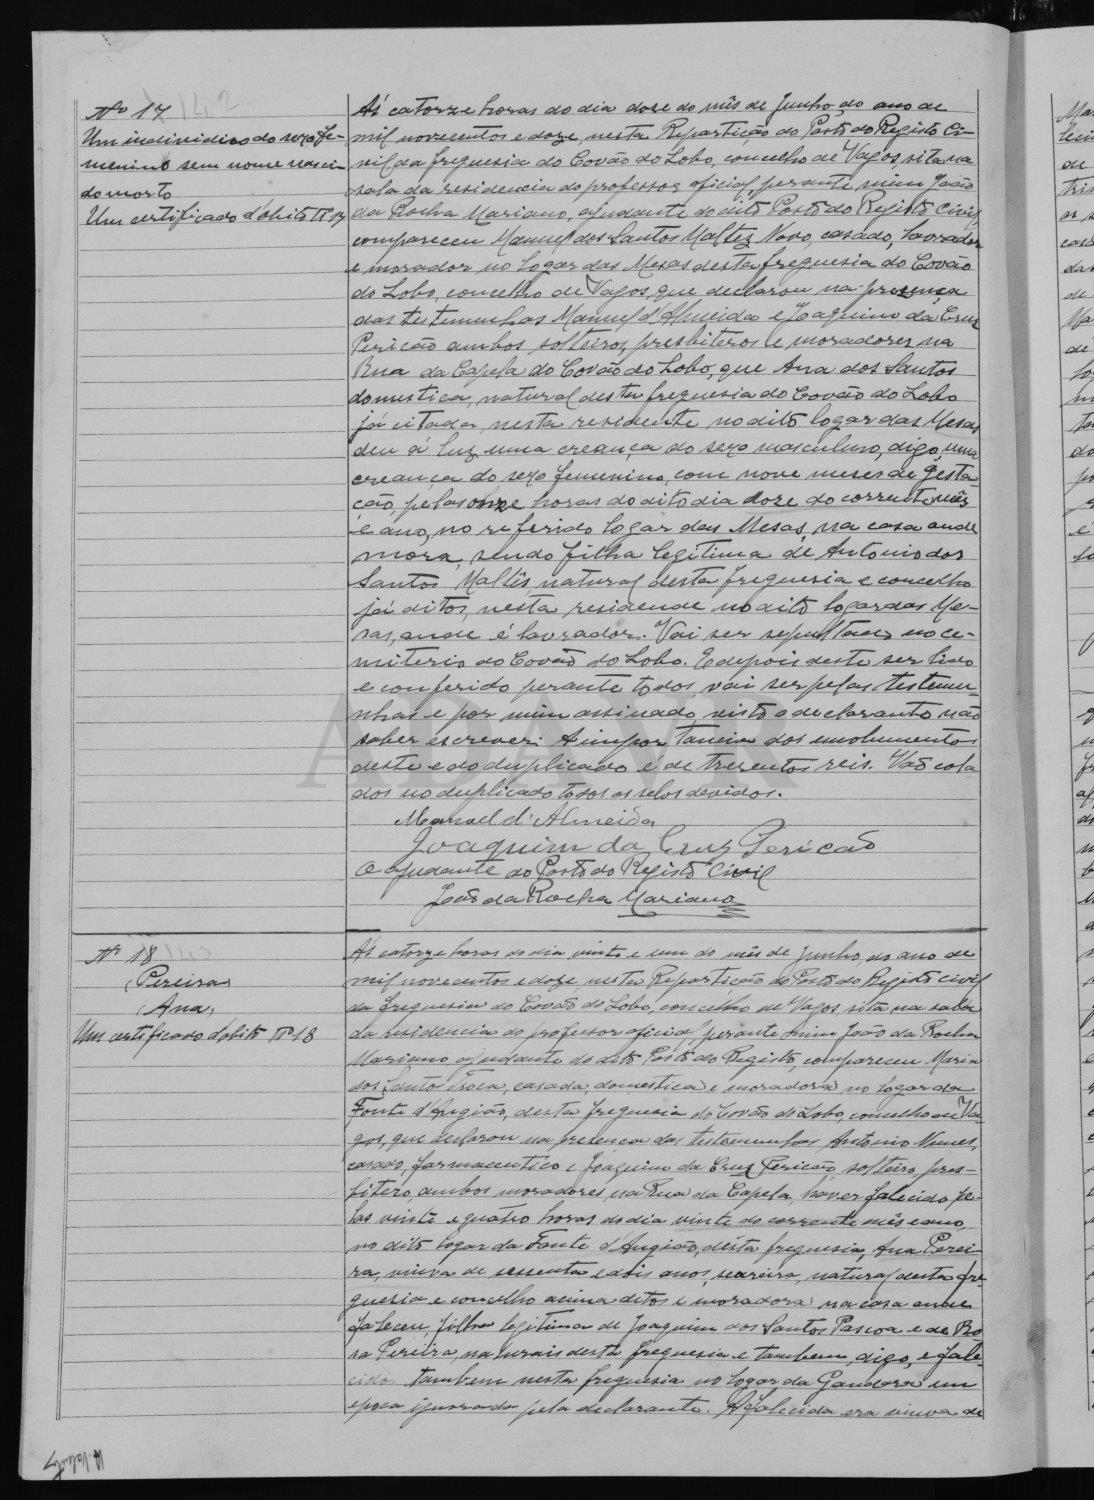 Nº 17 142
Um individuo do sexo fe-
menino sem nome nasci-
do morto
Um certificado d'óbito nº 17
Ás catorze horas do dia doze do mês de Junho do ano de
mil novecentos e doze, nesta Repartição do Posto do Registo Ci-
vil da freguesia do Covão do Lobo, concelho de Vagos, sita na
sala da residencia do professor oficial, perante mim João
da Rocha Mariano, ajudante do dito Posto do Registo Civil,
compareceu Manuel dos Santos Maltez Novo, casado, lavrador
e morador no logar das Mesas desta freguesia do Covão
do Lobo, concelho de Vagos, que declarou na presença
das testemunhas Manuel d'Almeida e Joaquim da Cruz
Pericão ambos solteiros, presbiteros e moradores na
Rua da Capela do Covão do Lobo, que Ana dos Santos
domestica, natural desta freguesia do Covão do Lobo
já citada, nesta residente no dito logar das Mesas
deu á luz uma creança do sexo masculino, digo, uma
creança do sexo femenino, com nove meses de gesta-
ção, pelas onze horas do dito dia doze do corrente mês
e ano, no referido logar das Mesas, na casa onde
mora, sendo filha legitima de Antonio dos
Santos Maltês, natural desta freguesia e concelho
já ditos, nesta residende no dito logar das Me-
sas, onde é lavrador. Vai ser sepultado no ce-
miterio do Covão do Lobo. E depois deste ser lido
e conferido perante todos, vai ser pelas testemu-
nhas e por mim assinado, visto o declarante não
saber escrever. A importancia dos emolumentos
deste e do duplicado é de trezentos reis. Vão cola-
dos no duplicado todos os selos devidos.
Manoel d'Almeida
Joaquim da Cruz Pericão
O ajudante do Posto do Registo Civil
João da Rocha Mariano
Nº 18
Pereira,
Ana,
Um certificado d'obito nº 18
Ás catorze horas do dia vinte e um do mês de Junho, do ano de
mil novecentos e doze, nesta Repartição do Posto do Registo civil
da freguesia do Covão do Lobo, concelho de Vagos, sita na sala
da residencia do professor oficial, perante mim João da Rocha
Mariano, ajudante do dito Posto do Registo, compareceu Maria
dos Santos, casada, domestica e moradora no logar da
Fonte d'Angião, desta freguesia do Covão do Lobo, concelho de Va-
gos, que declarou na presença das testemunhas Antonio Nunes,
casado, farmaceutico e Joaquim da Cruz Pericão, solteiro, pres-
bitero, ambos moradores, na Rua da Capela, haver falecido pe-
las vinte e quatro horas do dia vinte do corrente mês e ano,
no dito logar da Fonte d'Angião, desta freguesia, Ana Perei-
ra, viuva de sessenta e dois anos, seareira, natural desta fre-
guesia e concelho acima ditos e moradora na casa onde
faleceu, filha legitima de Joaquim dos Santos Pascoa e de Ro-
sa Pereira, naturais desta freguesia e tambem, digo, e fale-
cido tambem nesta freguesia no logar da Gandara em
epoca ignorada pela declarante. A falecida era viuva de